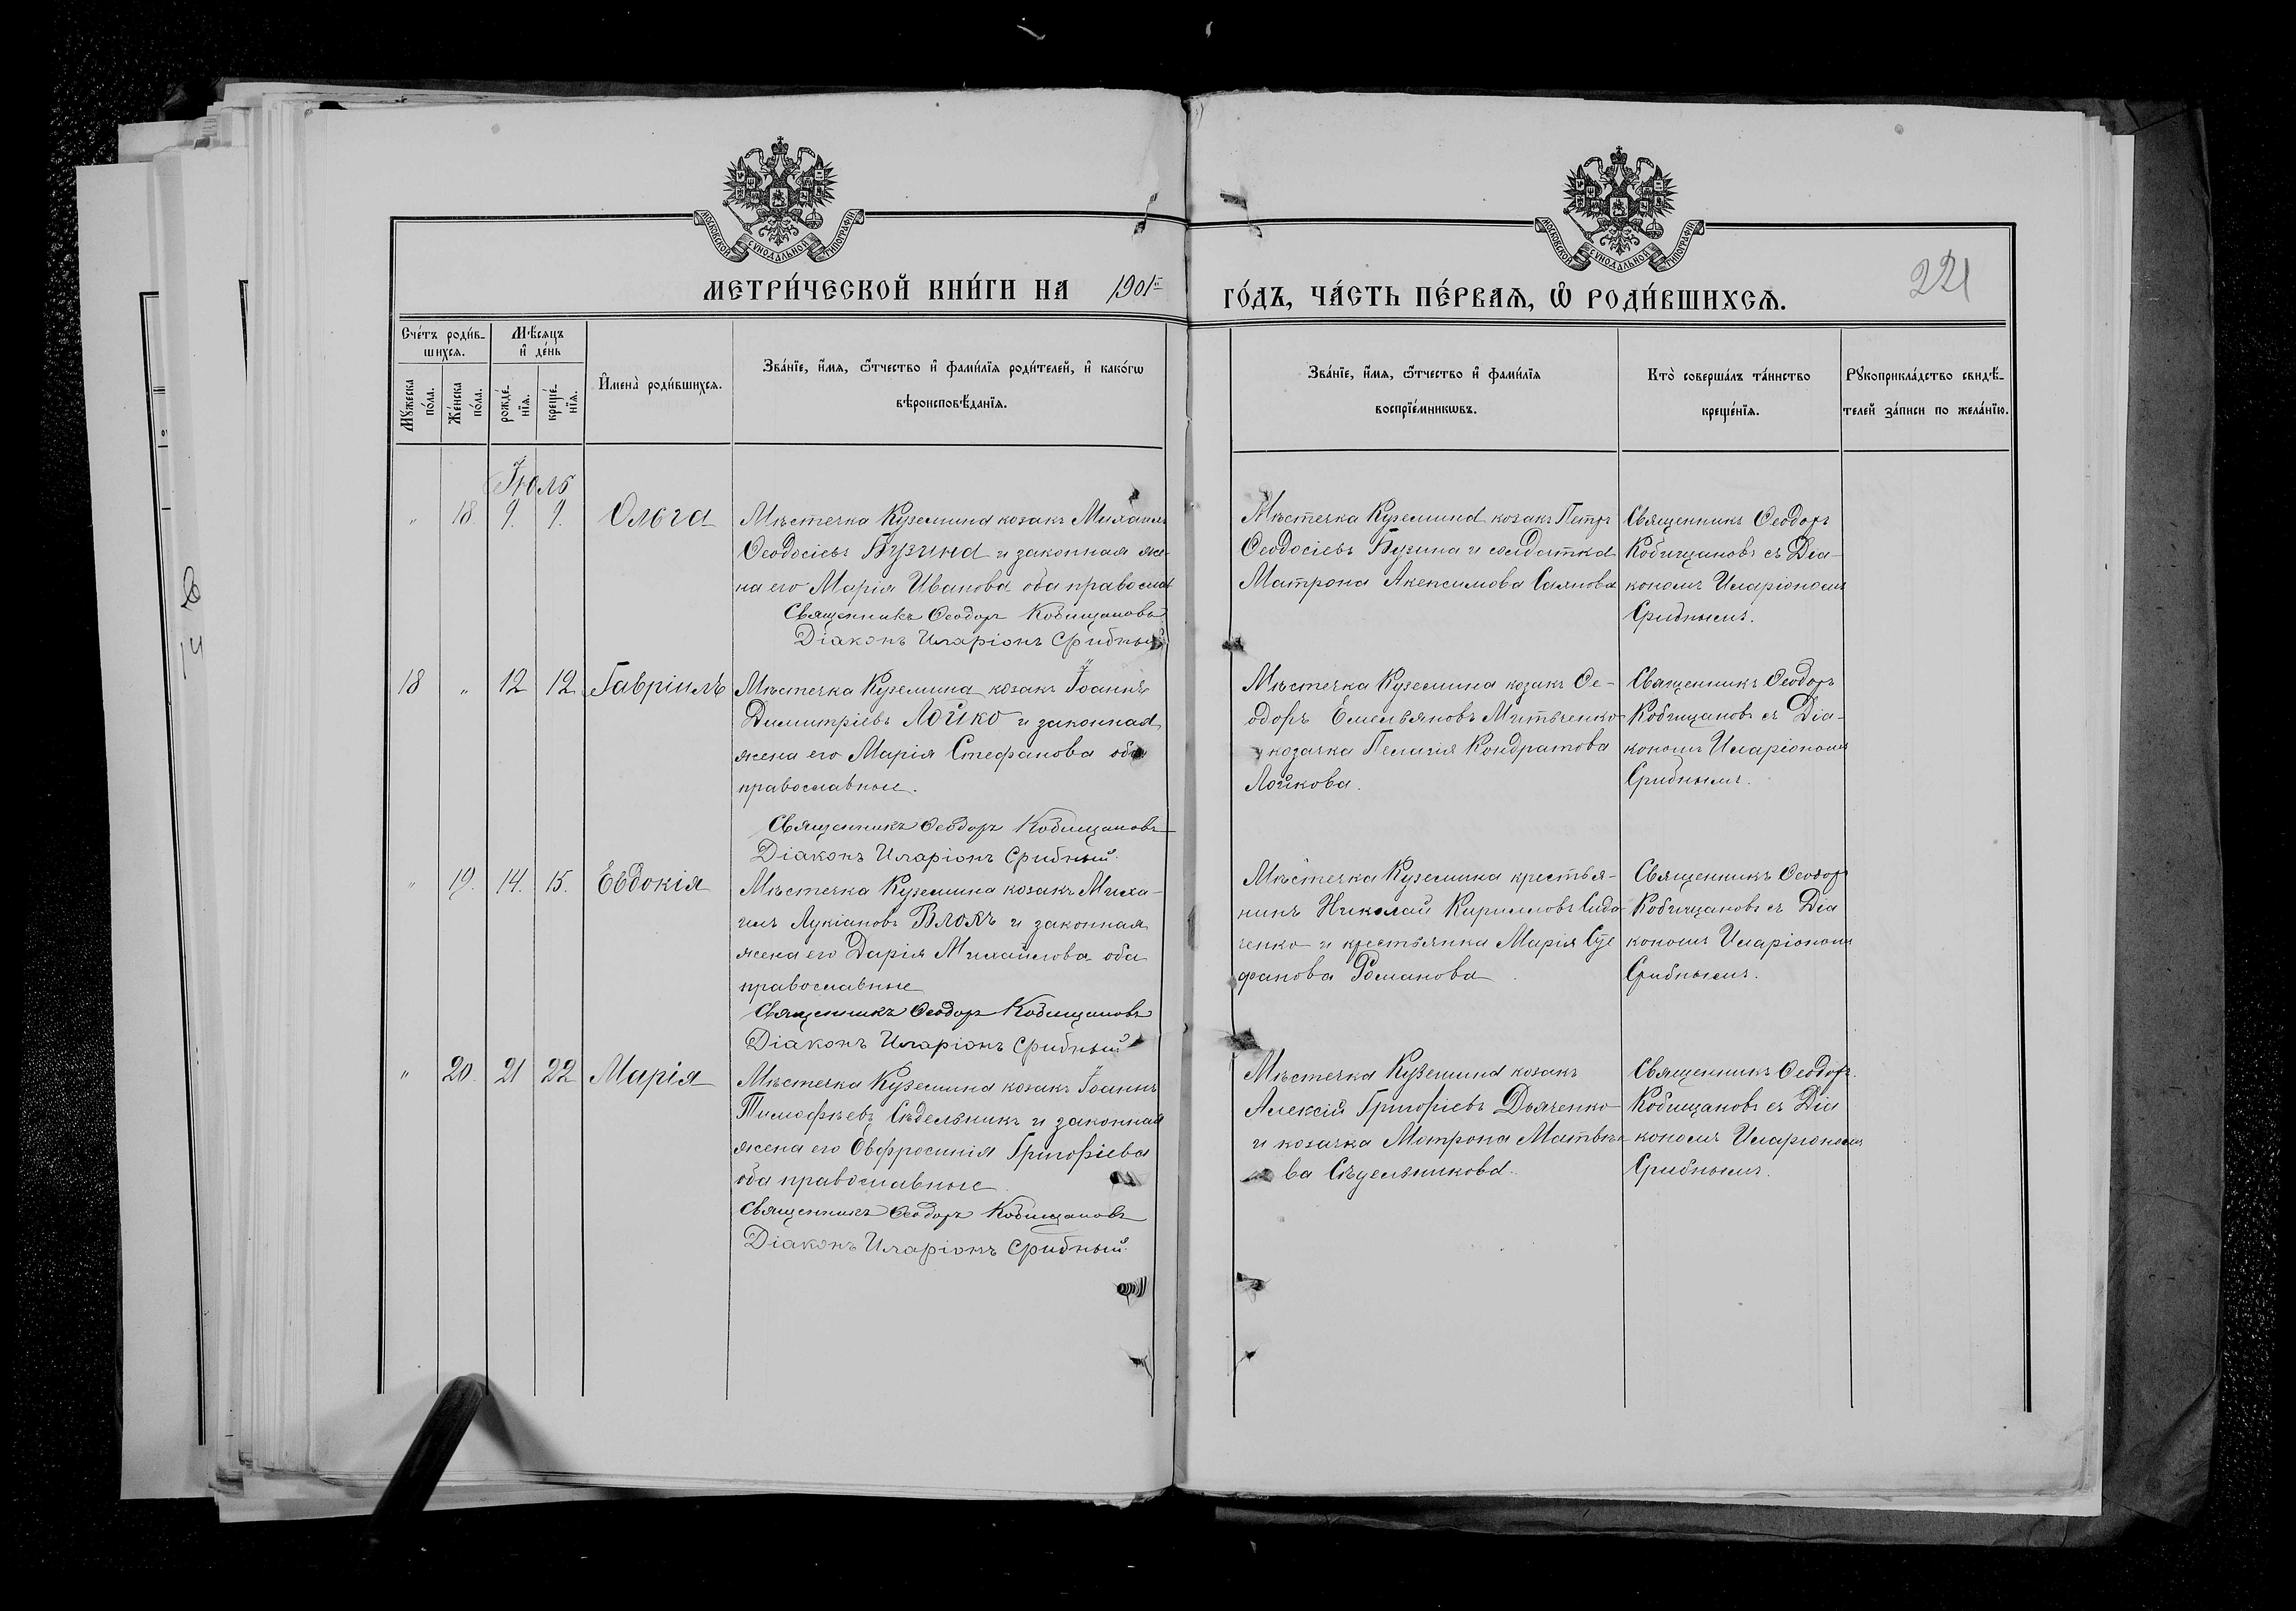 МОСКОВСКОЙ СУНОДАЛЬНОЙ ТИПОГРАФІИ
МОСКОВСКОЙ СУНОДАЛЬНОЙ ТИПОГРАФІИ
МЕТРИ́ЧЕСКОЙ КНИ́ГИ НА 1901
ГО́ДЪ, ЧА́СТЬ ПЕ́РВАѦ, Ѡ҆ РОДИ́ВШИХСѦ.
221
Сче́тъ роди́в-
шихсѧ.
Мѣ́сѧцъ
и҆ де́нь
Мꙋ́жеска
по́ла.
Же́нска
по́ла.
рожде́-
нїѧ.
креще́-
нїѧ.
И҆мена̀ роди́вшихсѧ.
Зва́нїе, и҆́мѧ, ѻ҆́тчество и҆ фами́лїѧ роди́телей, и҆ како́гѡ
вѣроисповѣ́данїѧ.
Зва́нїе, и҆́мѧ, ѻ҆́тчество и҆ фами́лїѧ
воспрїе́мникѡвъ.
Кто̀ соверша́лъ та́инство
креще́нїѧ.
Рꙋкоприкла́дство свидѣ́-
телей за́писи по жела́нїю.
Іюль
" 18. 9. 9. Ольга
Мѣстечка Куземина козакъ Михаилъ
Ѳеодосіевъ Бузина и законная же-
на его Марія Иванова оба православ
Священникъ Ѳеодоръ Кобищановъ
Діаконъ Иларіонъ Срибный
Мѣстечка Куземина козакъ Петръ
Ѳеодосіевъ Бузина и солдатка
Матрона Акексимова Саянова
Священникъ Ѳеодоръ
Кобищановъ съ Діа-
кономъ Иларіономъ
Срибнымъ.
18 " 12 12 Гавріилъ
Мѣстечка Куземина козакъ Іоаннъ
Димитріевъ Лойко и законная
жена его Марія Стефанова оба
православные.
Священникъ Ѳеодоръ Кобищановъ
Діаконъ Иларіонъ Срибный.
Мѣстечка Куземина козакъ Ѳе-
одоръ Емельяновъ Митьченко
и козачка Пелагія Кондратова
Лойкова.
Священникъ Ѳеодоръ
Кобищановъ съ Діа-
кономъ Иларіономъ
Срибнымъ.
" 19. 14. 15. Евдокія
Мѣстечка Куземина козакъ Миха-
илъ Лукіановъ Влохъ и законная
жена его Дарія Михайлова оба
православные
Священникъ Ѳеодоръ Кобищановъ
Діаконъ Иларіонъ Срибный
Мѣстечка Куземина крестья-
нинъ Николай Кирилловъ Сидо-
ренко и крестьянка Марія Сте
фанова Романова
Священникъ Ѳеодоръ
Кобищановъ съ Діа
кономъ Иларіономъ
Срибнымъ.
" 20. 21 22 Марія
Мѣстечка Куземина козакъ Іоаннъ
Тимофѣевъ Сѣдельникъ и законная
жена его Евфросинія Григоріева
оба православные
Священникъ Ѳеодоръ Кобищановъ
Діаконъ Иларіонъ Срибный.
Мѣстечка Куземина козакъ
Алексій Григоріевъ Дьяченко
и козачка Матрона Матвѣе-
ва Сѣдельникова.
Священникъ Ѳеодоръ.
Кобищановъ съ Діа
кономъ Иларіономъ
Срибнымъ.